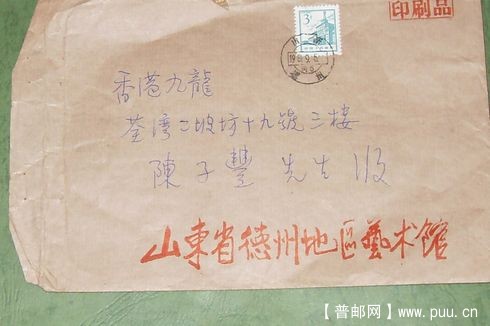 印刷品
3
香港九龍
荃湾二坡坊十九號三樓
陳子豐 先生 收
山東省德州地區藝术館
【普邮网】www.puu.cn